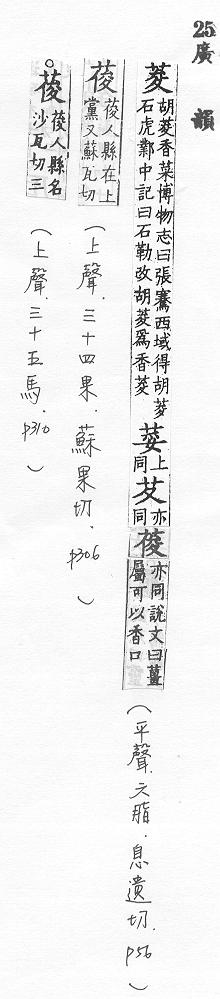 25廣 韻
荾 胡荾香菜博物志曰張騫西域得胡荾
石虎鄴中記曰石勒改胡荾爲香荾
荽 上同
亦同
葰 亦同說文曰薑
屬可以香口
(平聲.六脂.息遺切.p56)
葰 葰人縣在上
黨又蘇瓦切
(上聲.三十四果.蘇果切.p306)
。葰 葰人縣名
沙瓦切三
(上聲.三十五馬.p310)